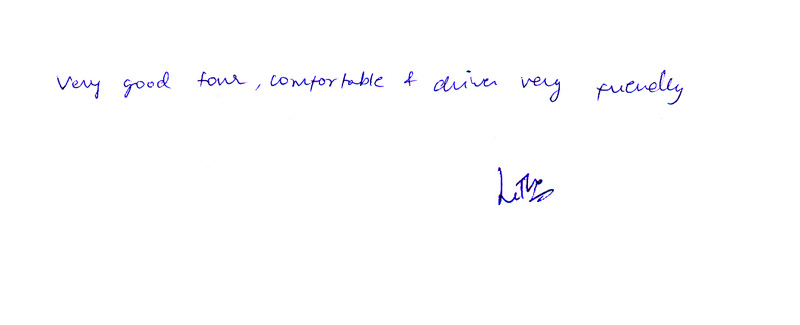 Very good tour, comfortable & driver very friendly